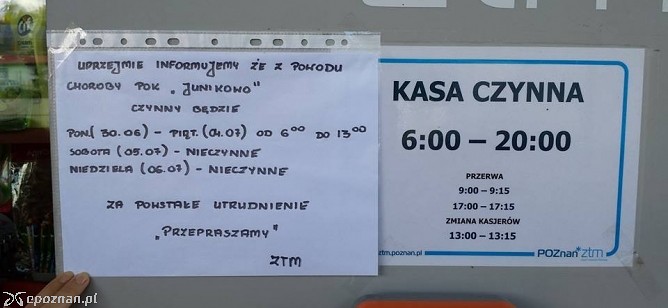 UPRZEJMIE INFORMUJEMY ŻE Z POWODU
CHOROBY POK „JUNIKOWO"
CZYNNY BĘDZIE
PON.(30.06) – PIĄT.(04.07) OD 6⁰⁰ DO 13⁰⁰
SOBOTA (05.07) – NIECZYNNE
NIEDZIELA (06.07) – NIECZYNNE
ZA POWSTAŁE UTRUDNIENIE
„PRZEPRASZAMY"
ZTM
KASA CZYNNA
6:00 – 20:00
PRZERWA
9:00 – 9:15
17:00 – 17:15
ZMIANA KASJERÓW
13:00 – 13:15
ztm.poznan.pl
POZnan* ztm
epoznan.pl